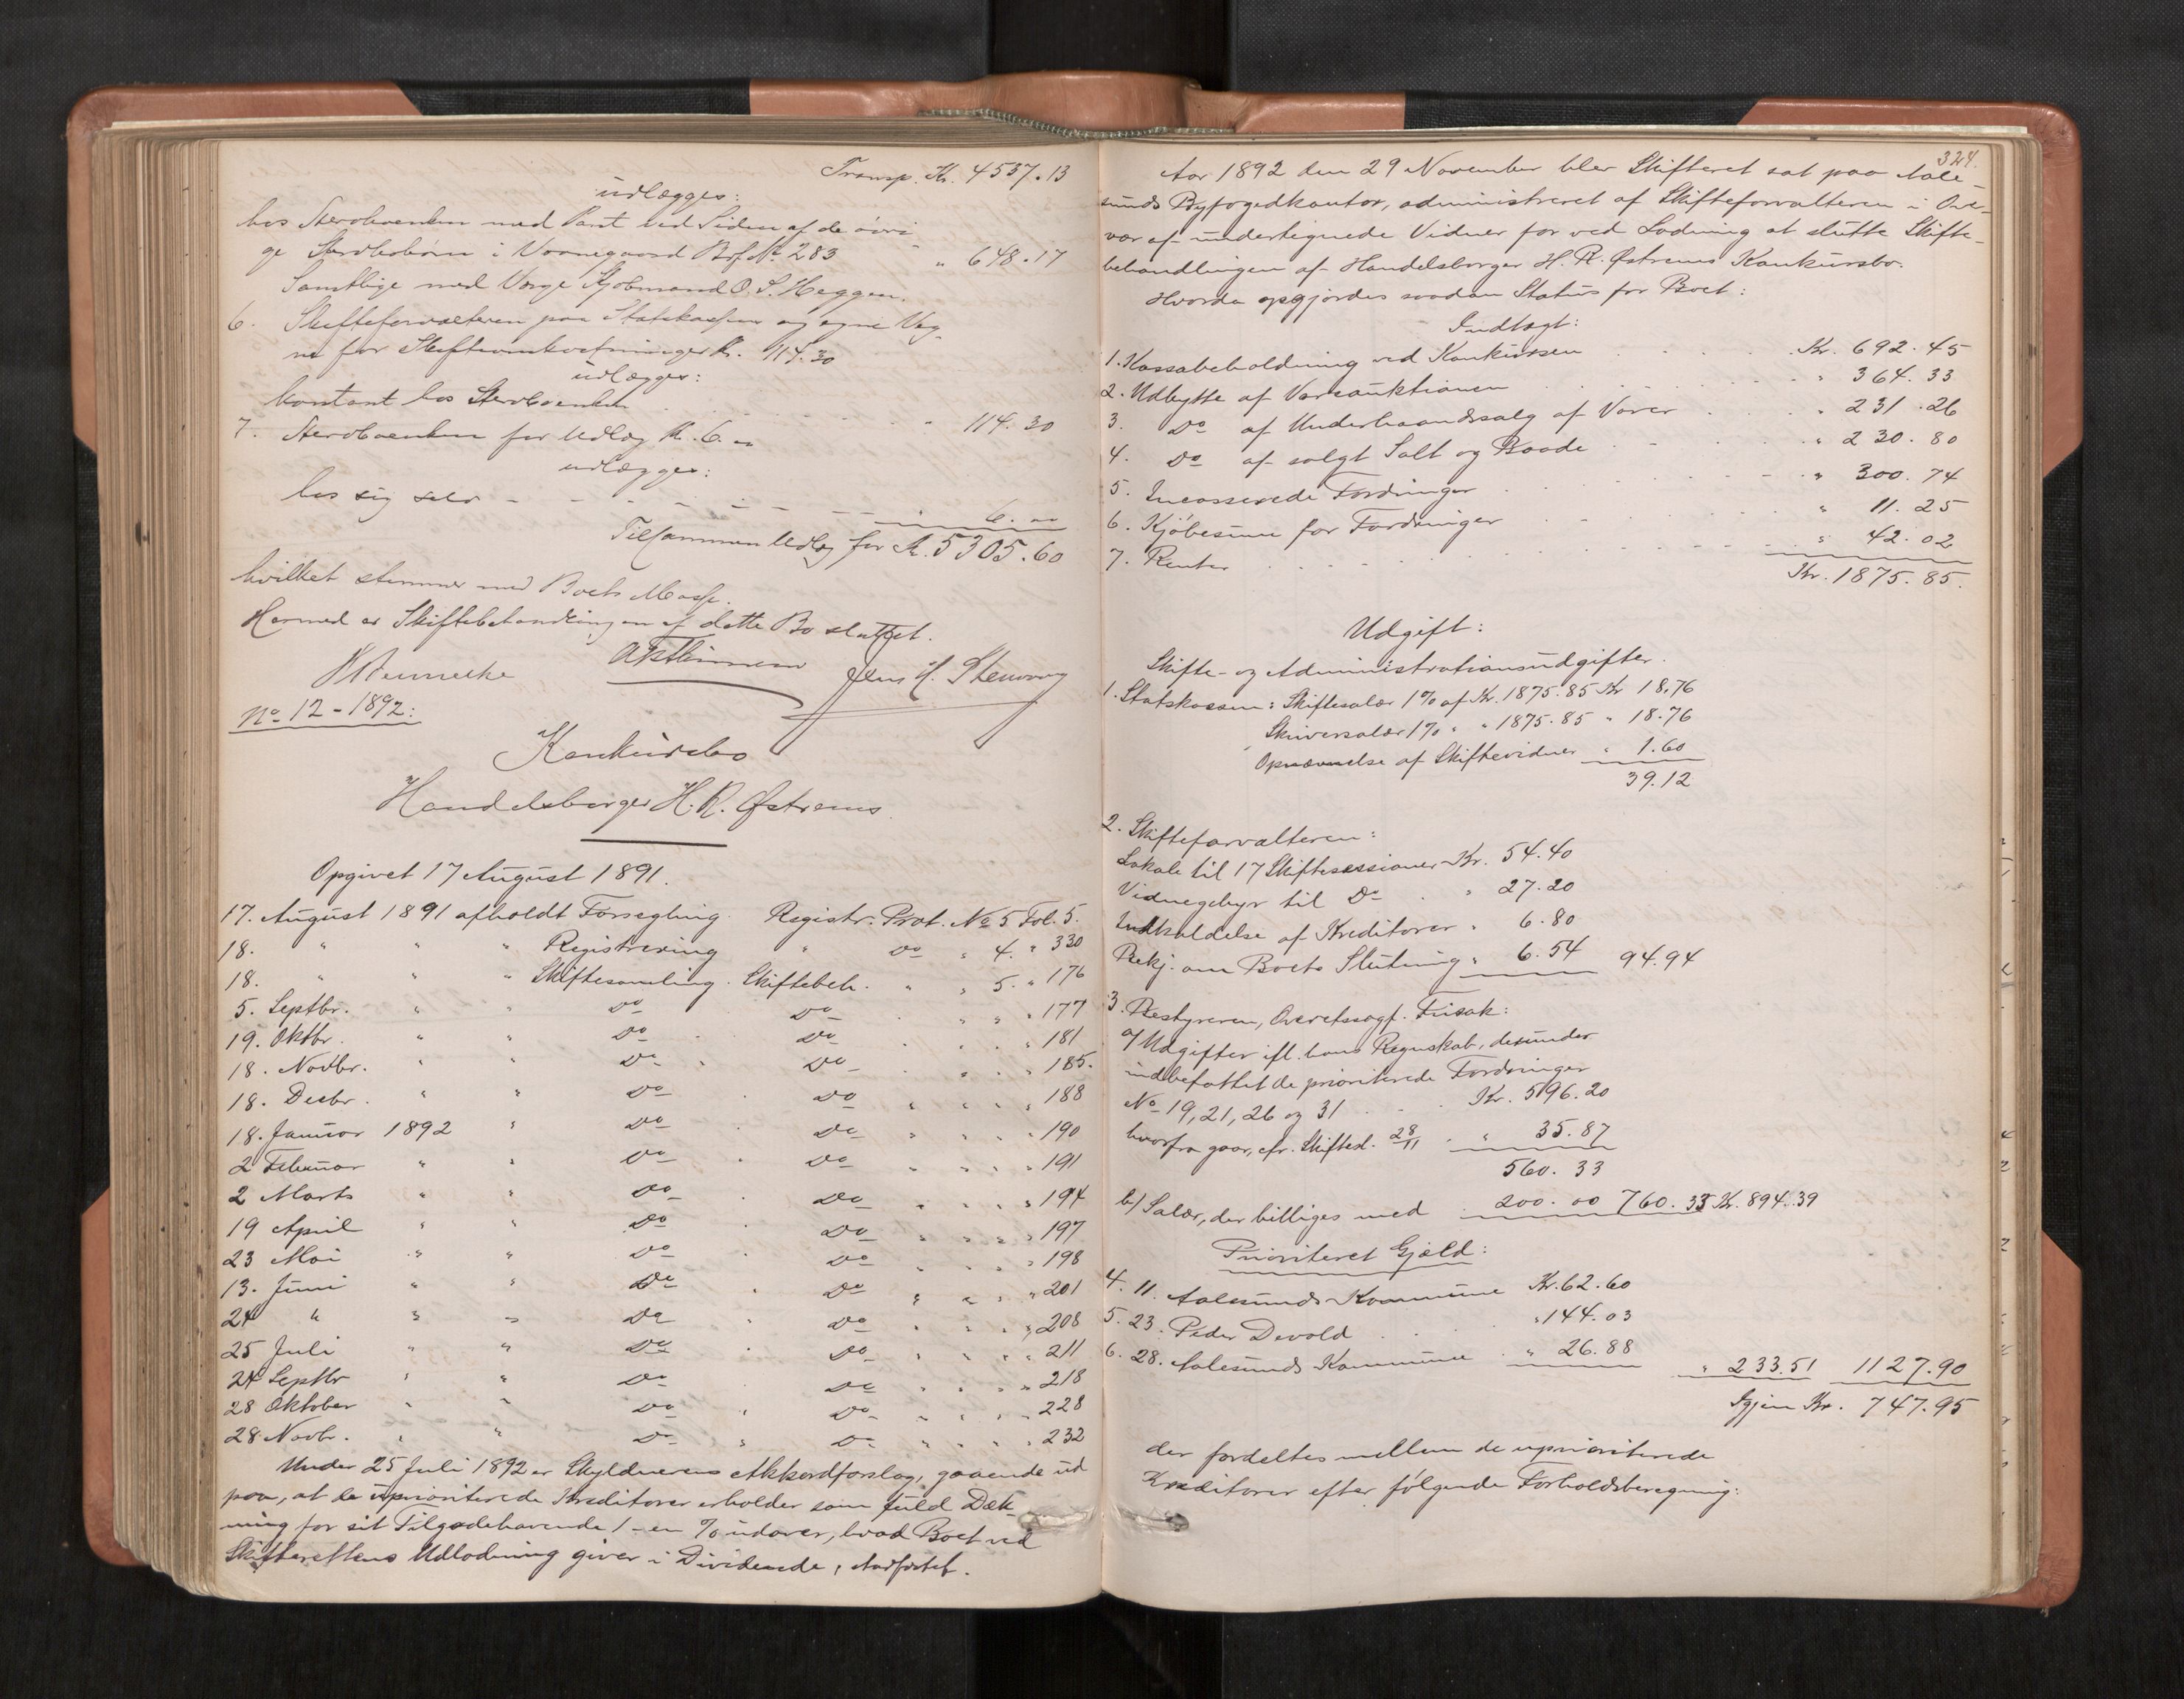 Transp. Kr. 4537.13
udlægges:
hos Stervboenken med Pant ved Siden af de øvri-
ge Stervbobørn i Vaanegaard Brf. No 283 " 648.17
Samtlige med Værge Kjøbmand O. S. Heggen.
6. Skifteforvalteren paa Statskassens og egne Veg-
ne for Skifteomkostninger Kr. 114.30
udlægges:
kontant hos Stervboenken " 114.30
7. Stervboenken for Udlæg Kr. 6.00
udlægges:
hos sig selv 6.00
Tilsammen Udlæg for Kr. 5305.60
hvilket stemmer med Boets Masse.
Hermed er Skiftebehandlingen af dette Bo sluttet.
No 12 - 1892:
Konkursbo
Handelsborger H. R. Østrems
Opgivet 17 August 1891.
17. August 1891 afholdt Forsegling. Registr. Prot. No 5 Fol. 5.
18. " " " Registrering " Do " 4. " 330
18. " " " Skiftesamling. Skiftebeh. " " 5. " 176
5. Septbr. " " Do Do " " " 177
19. Oktbr. " " Do Do " " " 181
18. Novbr. " " Do " Do " " " 185.
18. Decbr. " " Do Do " " " " 188
18. Januar 1892 " Do Do " " " " 190
2 Februar " " Do Do " " " " 191
2 Marts " " Do Do " " " " 194
19 April " " Do Do " " " " 197
23 Mai " " Do Do " " " " 198
13. Juni " " Do Do " " " " 201
24 " " " Do Do " " " " 208
25 Juli " " Do Do " " " " 211
24 Septbr " " Do Do " " " " 218
28 Oktober " " Do Do " " " " 228
28 Novbr. " " Do " Do " " " " 232
Under 25 Juli 1892 er Skyldnerens Akkordforslag, gaaende ud
paa, at de uprioriterede Kreditorer erholder som fuld Dæk-
ning for sit Tilgodehavende 1 - en % udover, hvad Boet ved
Skifterettens Udlodning giver i Dividende,
324.
Aar 1892 den 29 November blev Skifteret sat paa Aale-
sunds Byfogedkontor, administreret af Skifteforvalteren i Over-
vær af undertegnede Vidner for ved Lodning at slutte Skifte-
behandlingen af Handelsborger H. R. Østrems Konkursbo.
Hvorda opgjordes saadan Status for Boet:
Indtægt:
1. Kassabeholdning ved Konkursen Kr. 692.45
2. Udbytte af Vareauktionen " 364.33
3. Do af Underhaandssalg af Varer " 231.26
4. Do af solgt Salt og Baade " 230.80
5. Incasserede Fordringer " 300.74
6. Kjøbesum for Fordringer " 11.25
7. Renter " 42.02
Kr. 1875.85.
Udgift:
Skifte- og Administrationsudgifter.
1. Statskassen: Skiftesalær 1% af Kr. 1875.85 Kr 18.76
Skriversalær 1% " " 1875.85 " 18.76
Opnævnelse af Skiftevidner " 1.60
39.12
2. Skifteforvalteren:
Lokale til 17 Skiftesessioner Kr. 54.40
Vidnegebyr til Do " 27.20
Indkaldelse af Kreditorer " 6.80
Bekj. om Boets Slutning " 6.54 94.94
3. Bestyreren, Overretssagf. Frisak:
a/ Udgifter ifl. hans Regnskab, derunder
indbefattet de prioriterede Fordringer
No 19, 21, 26 og 31 Kr. 596.20
hvorfra gaar, cfr. Skiftesl. 28/11 " 35.87
560.33
b/ Salær, der billiges med 200.00 760.33 Kr. 894.39
Prioriteret Gjæld:
4. 11. Aalesunds Kommune Kr. 62.60
5. 23. Peder Devold " 144.03
6. 28. Aalesunds Kommune " 26.88
" 233.51 1127.90
Igjen Kr. 747.95
der fordeltes mellem de uprioriterede
Kreditorer efter følgende Forholdsberegning: